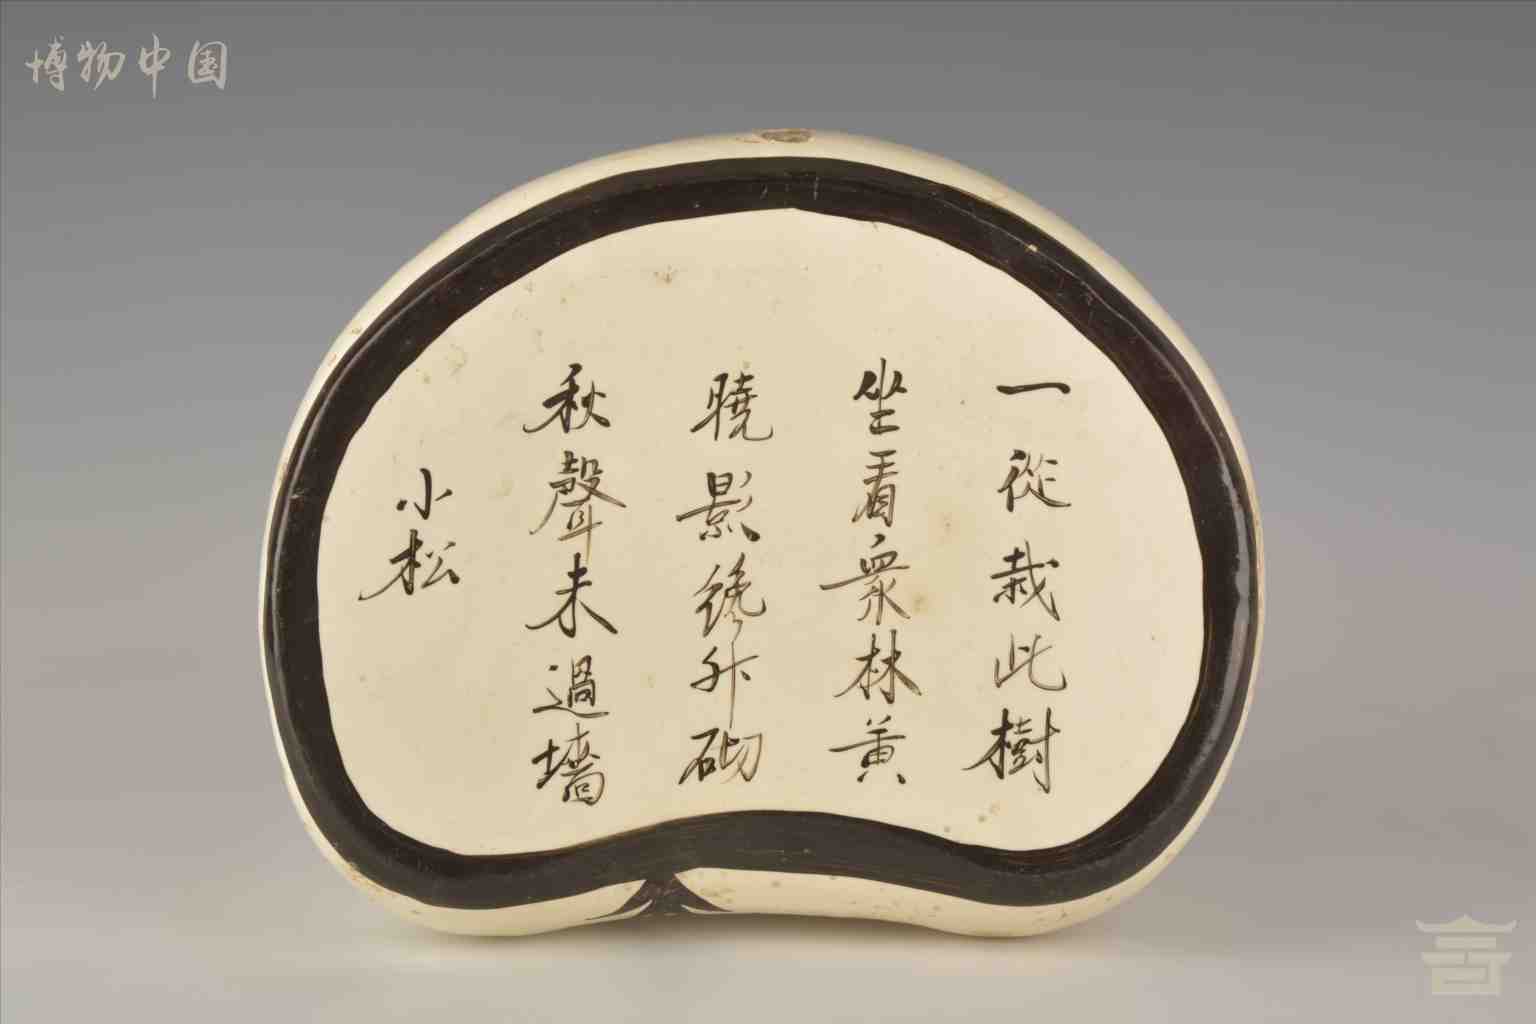 博物中国
一從栽此樹
坐看衆林黄
曉影纔升砌
秋聲未過墻
小松